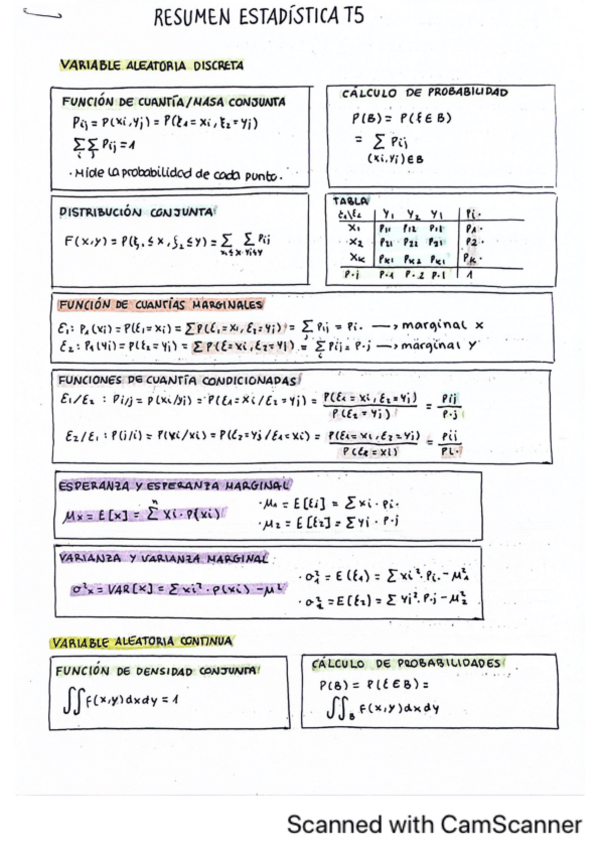 RESUMEN ESTADÍSTICA T5
VARIABLE ALEATORIA DISCRETA
FUNCIÓN DE CUANTÍA/MASA CONJUNTA
Pij = P(xi,yj) = P(ξ1 = xi, ξ2 = yj)
∑i ∑j Pij = 1
· Mide la probabilidad de cada punto.
CÁLCULO DE PROBABILIDAD
P(B) = P(ξ ∈ B)
= ∑ Pij
(xi,yi) ∈ B
DISTRIBUCIÓN CONJUNTA
F(x,y) = P(ξ1 ≤ x, ξ2 ≤ y) = ∑ ∑ Pij
xi≤x yi≤y
TABLA
ξ1\ξ2 Y1 Y2 Y1 Pi·
X1 P11 P12 P11 P1·
X2 P21 P22 P21 P2·
XK PK1 PK2 PK1 PK·
P·j P·1 P·2 P·1 1
FUNCIÓN DE CUANTÍAS MARGINALES
ξ1: P1(xi) = P(ξ1 = xi) = ∑P(ξ1 = xi, ξ2 = yj) = ∑j Pij = Pi· → marginal x
ξ2: P1(yi) = P(ξ2 = yj) = ∑P(ξ = xi, ξ2 = yj) = ∑i Pij = P·j → marginal y
FUNCIONES DE CUANTÍA CONDICIONADAS
ξ1/ξ2 : Pi/j = P(xi/yj) = P(ξ1 = xi/ξ2 = yj) = P(ξ1 = xi, ξ2 = yj) / P(ξ2 = yj) = Pij / P·j
ξ2/ξ1 : P(j/i) = P(yi/xi) = P(ξ2 = yj/ξ1 = xi) = P(ξ1 = xi, ξ2 = yj) / P(ξ2 = xi) = Pij / Pi·
ESPERANZA Y ESPERANZA MARGINAL
μx = E[x] = ∑n xi · P(xi)
· μ1 = E[ξi] = ∑ xi · Pi·
· μ2 = E[ξ2] = ∑ yi · P·j
VARIANZA Y VARIANZA MARGINAL
σ²x = VAR[x] = ∑ xi² · P(xi) - μ²
· σ²1 = E(ξ1) = ∑ xi² · Pi· - μ²1
· σ²2 = E(ξ2) = ∑ yj² · P·j - μ²2
VARIABLE ALEATORIA CONTINUA
FUNCIÓN DE DENSIDAD CONJUNTA
∫∫ f(x,y) dxdy = 1
CÁLCULO DE PROBABILIDADES
P(B) = P(ξ ∈ B) =
∫∫B f(x,y) dxdy
Scanned with CamScanner